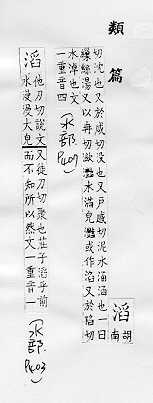 類篇
涽 胡南
切沈也又於感切没也又戶感切泥水涽涽也一曰
繅絲湯又以冉切㪘灩水滿皃灩或作滔又於陷切
水淖也文
一重音四
(水部. P.401)
滔 他刀切說文
水漫漫大皃又徒刀切聚也莊子滔乎前
而不知所以然文一重音一
(水部 P.403)